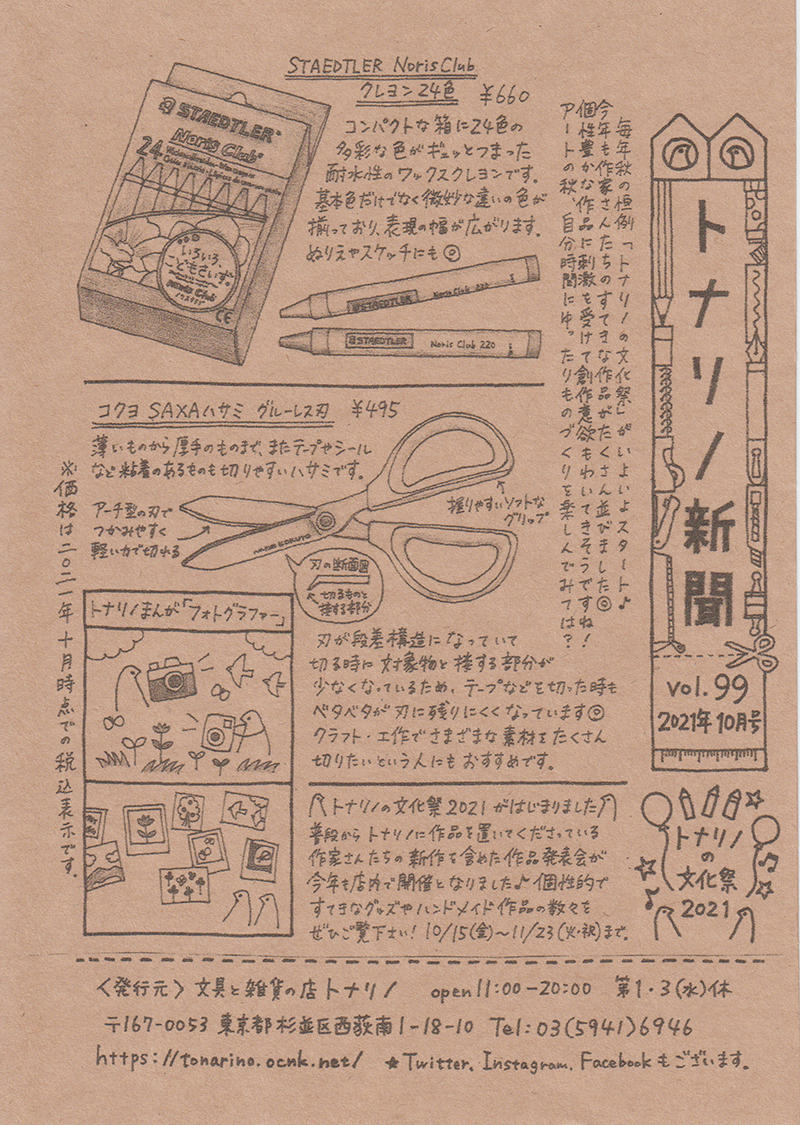 トナリノ新聞
vol.99
2021年10月号
毎年秋の恒例「トナリノの文化祭」がいよいよスタート♪
今年も作家さんたちのすてきな作品がたくさん並びました◎
個性豊かな作品に刺激を受けて創作意欲もわいてきそうですね!
アートの秋、自分時間にゆったりものづくりを楽しんでみては?
STAEDTLER Noris Club
クレヨン24色 ¥660
コンパクトな箱に24色の
多彩な色がギュッとつまった
耐水性のワックスクレヨンです。
基本色だけでなく微妙な違いの色が
揃っており、表現の幅が広がります。
ぬりえやスケッチにも◎
STAEDTLER
Noris Club
24
いろいろ、
こどもさいず。
Noris Club
CE
STAEDTLER Noris Club 220
STAEDTLER Noris Club 220
コクヨ SAXAハサミ グルーレス刃 ¥495
薄いものから厚手のものまで、またテープやシール
など粘着のあるものも切りやすいハサミです。
アーチ型の刃で
つかみやすく
軽い力で切れる
握りやすいソフトな
グリップ
KOKUYO
刃の断面図
切るものと
接する部分
刃が段差構造になっていて
切る時に対象物と接する部分が
少なくなっているため、テープなどを切った時も
ベタベタが刃に残りにくくなっています◎
クラフト・工作でさまざまな素材をたくさん
切りたいという人にもおすすめです。
※価格は二〇二一年十月時点での税込表示です。
トナリノまんが「フォトグラファー」
トナリノの文化祭2021がはじまりました
普段からトナリノに作品を置いてくださっている
作家さんたちの新作を含めた作品発表会が
今年も店内で開催となりました♪個性的で
すてきなグッズやハンドメイド作品の数々を
ぜひご覧下さい! 10/15(金)〜11/23(火・祝)まで。
トナリノ
の
文化祭
2021
〈発行元〉文具と雑貨の店トナリノ open 11:00-20:00 第1・3(水)休
〒167-0053 東京都杉並区西荻南1-18-10 Tel:03(5941)6946
https://tonarino.ocnk.net/ ★Twitter、Instagram、Facebookもございます。